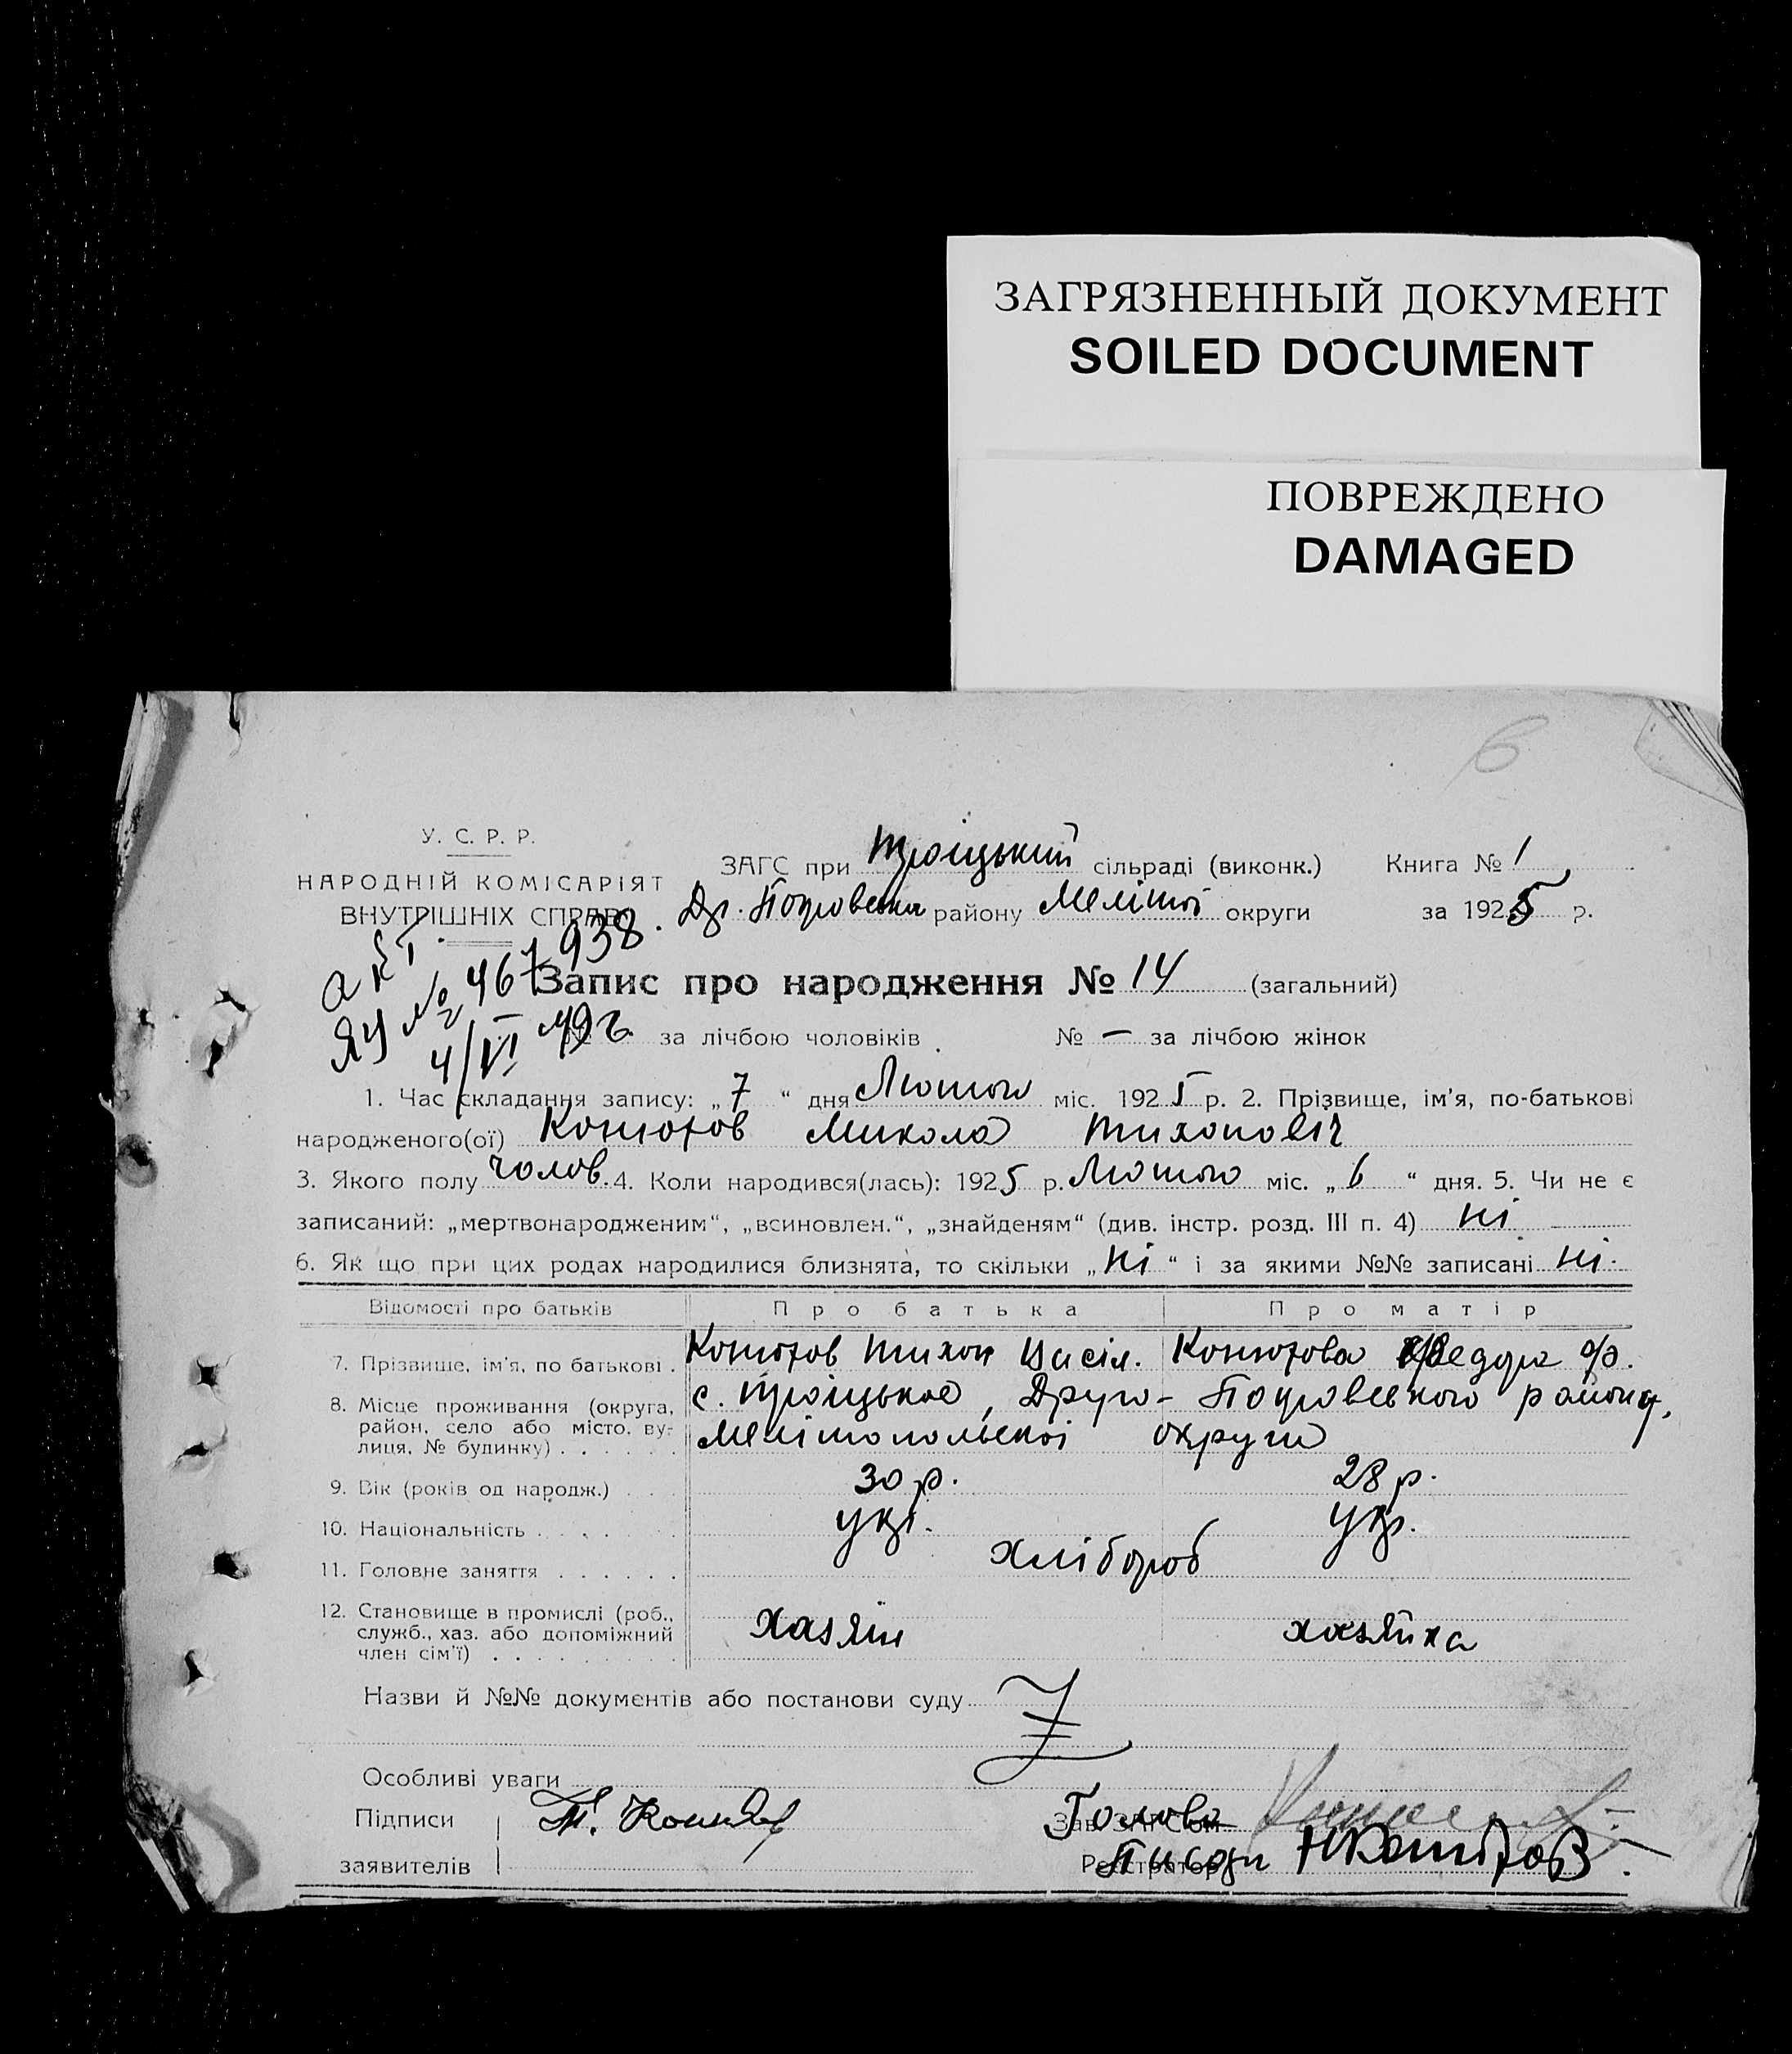 ЗАГРЯЗНЕННЫЙ ДОКУМЕНТ
SOILED DOCUMENT
ПОВРЕЖДЕНО
DAMAGED
6
У. С. Р. Р.
НАРОДНІЙ КОМІСАРІЯТ
ВНУТРІШНІХ СПРАВ
ЗАГС при Троіцький сільраді (виконк.) Книга № 1
Др. Покровськи району Меліт округи за 1925 р.
акт. 938.
ЯЦ № 467
4/VI 49 г.
Запис про народження № 14 (загальний)
№ за лічбою чоловіків № — за лічбою жінок
1. Час складання запису: „ 7 “ дня Лютого міс. 1925 р. 2. Прізвище, ім'я, по-батькові
народженого(ої) Конютов Микола Тихонович
3. Якого полу чолов. 4. Коли народився(лась): 1925 р. Лютого міс. „ 6 “ дня. 5. Чи не є
записаний: „мертвонародженим“, „всиновлен.“, „знайденям“ (див. інстр. розд. III п. 4) ні
6. Як що при цих родах народилися близнята, то скільки „ ні “ і за якими №№ записані ні.
Відомості про батьків Про батька Про матір
7. Прізвище, ім'я, по батькові . Конютов Тихон Васіл. Конютова Федора
8. Місце проживання (округа, с. Троіцькоє, Друго-Покровського району,
район, село або місто, ву- Мелітопольскоі округи
лиця, № будинку) . . . . . .
9. Вік (років од народж.) . . . 30 р. 28 р.
10. Національність . . . . . укр. укр.
11. Головне заняття . . . . . . хлібороб
12. Становище в промислі (роб.,
служб., хаз. або допоміжний хазяін хазяйка
член сім'ї) . . . . . . . . .
Назви й №№ документів або постанови суду
Особливі уваги
Підписи Т. Конютов Зав. ЗАГСом Голова
заявителів Реєстратор Писарь Н Конютов